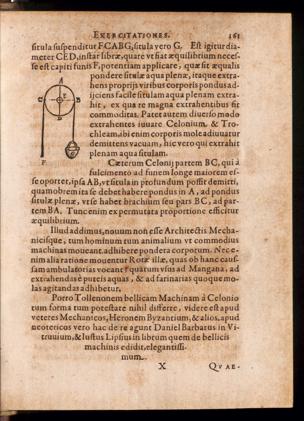 EXERCITATIONES. 161
situla suspenditur FCABG, situla vero G. Est igitur dia-
meter CED, instar libræ, quare vt fiat æquilibrium neces-
se est capiti funis F, potentiam applicare, quæ sit æqualis
pondere situlæ aqua plenæ, itaque extra-
hens proprijs viribus corporis pondus ad-
ijciens facile situlam aqua plenam extra-
hit, ex qua re magna extrahentibus fit
commoditas. Patet autem diverso modo
extrahentes iuvare Celonium, & Tro-
chleam, ibi enim corporis mole adiuuatur
demittens vacuam, hic vero qui extrahit
plenam aqua situlam.
Cæterum Celonij partem BC, qui à
fulcimento ad funem longe maiorem es-
se oportet, ipsa AB, vt situla in profundum possit demitti,
quamobrem ita se debet habere pondus in A, ad pondus
situlæ plenæ, vt se habet brachium seu pars BC, ad par-
tem BA. Tunc enim ex permutata proportione efficitur
æquilibrium.
Illud addimus, novum non esse Architectis Mecha-
nicisque, tum hominum tum animalium vt commodius
machinas moueant, adhibere pondera corporum. Nec e-
nim alia ratione mouentur Rotæ illæ, quas ob hanc caus-
sam ambulatorias vocant quarum vsus ad Mangana, ad
extrahendas è puteis aquas, & ad farinarias quoque mo-
las agitandas adhibetur.
Porro Tollenonem bellicam Machinam à Celonio
tum forma tum potestate nihil differre, videre est apud
veteres Mechanicos, Heronem Byzantium, & alios, apud
neotericos vero hac de re agunt Daniel Barbarus in Vi-
truuium, & Iustus Lipsius in librum quem de bellicis
machinis edidit, elegantissi-
mum.
X QVAE-
A
C B
E
D
F G